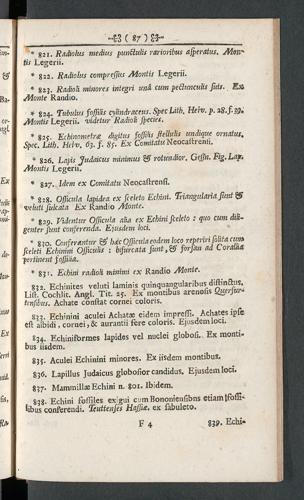 ( 87 )
* 821. Radiolus medius punctulis rarioribus asperatus. Mon-
tis Legerii.
* 822. Radiolus compressus Montis Legerii.
* 823. Radioli minores integri una cum pectunculis suis. Ex
Monte Randio.
* 824. Tubulus fossilis cylindraceus. Spec. Lith. Helv. p. 28. f. 39.
Montis Legerii. videtur Radioli species.
* 825. Echinometræ digitus fossilis stellulis undique ornatus,
Spec. Lith. Helv. 63. f. 85. Ex Comitatu Neocastrensi.
* 826. Lapis Judaicus minimus & rotundior. Gesn. Fig. Lap.
Montis Legerii.
* 827. Idem ex Comitatu Neocastrensi.
* 828. Ossicula lapidea ex sceleto Echini. Triangularia sunt &
veluti sulcata Ex Randio Monte.
* 829. Videntur Ossicula alia ex Echini sceleto: quo cum dili-
genter sunt conferenda. Ejusdem loci.
* 830. Conferantur & hæc Ossicula eodem loco reperiri solita cum
sceleti Echinini Ossiculis: bifurcata sunt, & forsan ad Corallia
pertinent fossilia.
* 831. Echini radioli minimi ex Randio Monte.
832. Echinites veluti laminis quinquangularibus distinctus,
List. Cochlit. Angl. Tit. 25. Ex montibus arenosis Querfur-
tensibus. Achate constat cornei coloris.
833. Echinini aculei Achatæ eidem impressi. Achates ipse
est albidi, cornei, & aurantii fere coloris. Ejusdem loci.
834. Echinisformes lapides vel nuclei globosi. Ex monti-
bus iisdem.
835. Aculei Echinini minores. Ex iisdem montibus.
836. Lapillus Judaicus globosior candidus. Ejusdem loci.
837. Mammillæ Echini n. 801. Ibidem.
* 838. Echini fossiles exigui cum Bononiensibus etiam fossi-
libus conferendi. Teuttenses Hassiæ. ex sabuleto.
F 4
839. Echi-